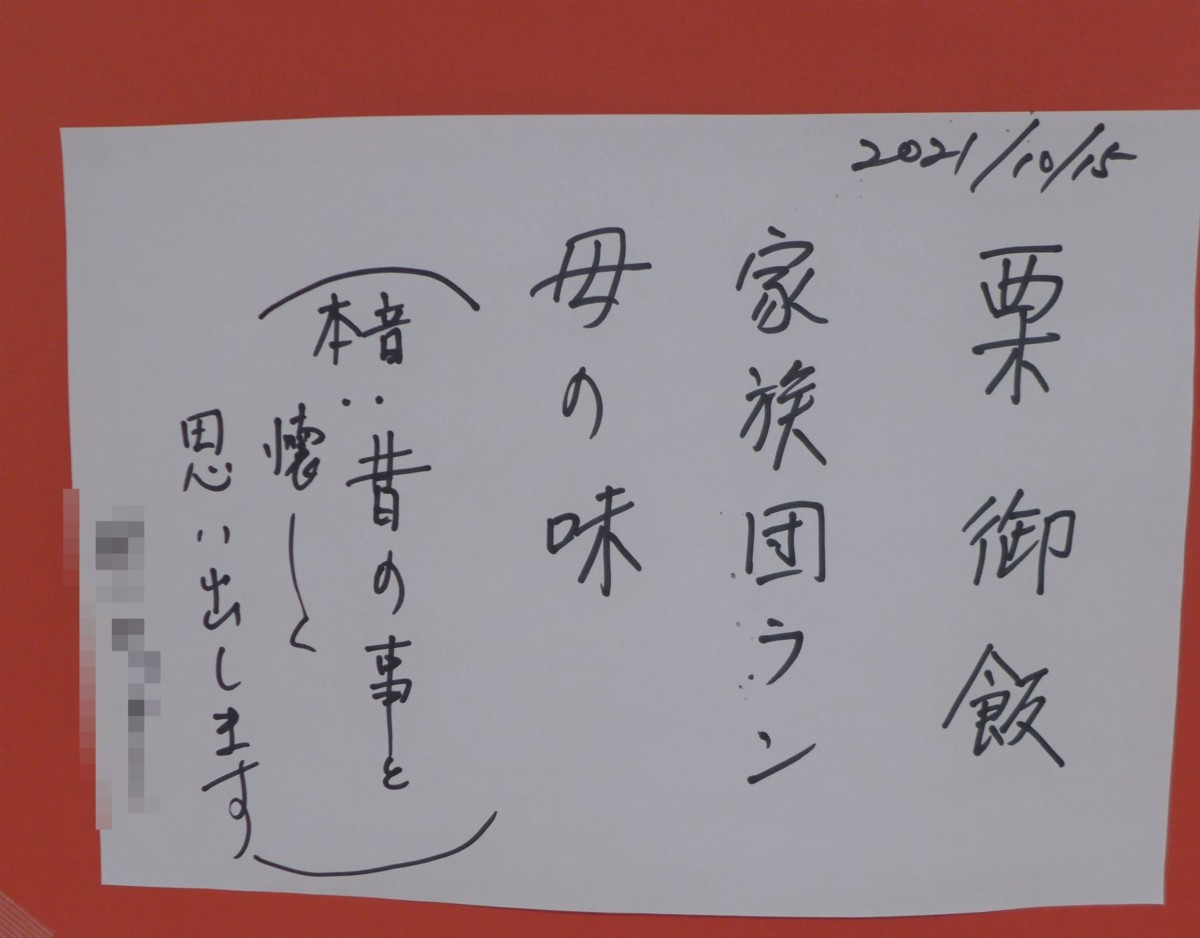 2021/10/15
栗御飯
家族団ラン
母の味
(本音:昔の事と
懐しく
思い出します)